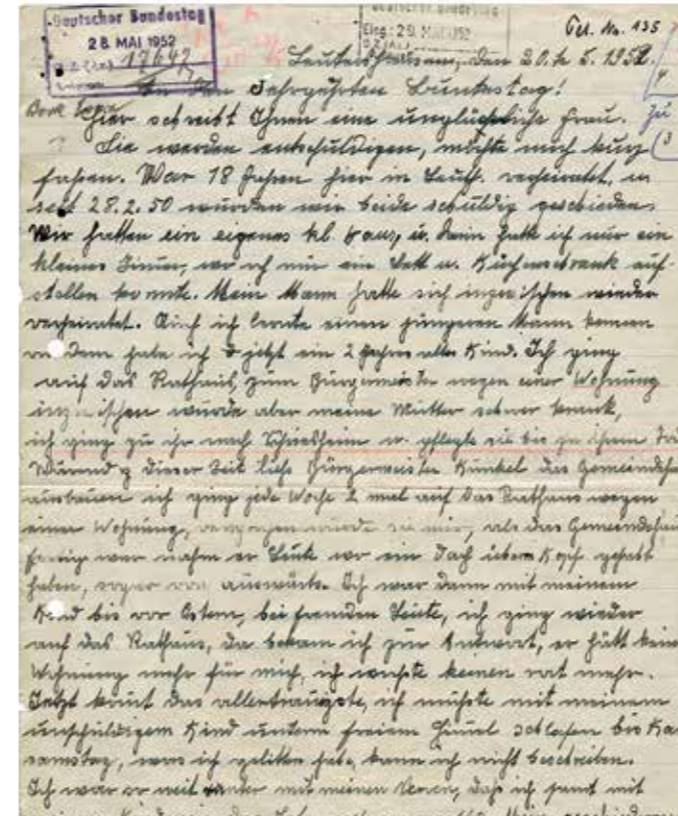 Deutscher Bundestag
28. MAI 1952
17642
Deutscher Bundestag
Eing.: 29. MAI 1952
Tel. No. 135
Leutershausen, den 20. 5. 1952.
An den Sehrgeehrten Bundestag!
Hier schreibt Ihnen eine unglückliche Frau.
Sie werden entschuldigen, möchte mich kurz
faßen. War 18 Jahren hier in Leuth. verheiratet, u.
seit 28.2.50 wurden wir beide schuldig geschieden.
Wir hatten ein eigenes kl. Haus, u. darin hatte ich nur ein
kleines Zimer, wo ich nur ein Bett u. Küchenschrank auf-
stellen konnte. Mein Mann hatte sich inzwischen wieder
verheiratet. Auch ich lernte einen jüngeren Mann kennen
von dem habe ich jetzt ein 2 Jahres altes Kind. Ich ging
auf das Rathaus, zum Bürgermeister wegen einer Wohnung
inzwischen wurde aber meine Mutter schwer krank,
ich ging zu ihr nach Schriesheim u. pflegte sie bis zu ihrem Tod
Während dieser Zeit ließ Bürgermeister Kunkel das Gemeindehau
ausbauen ich ging jede Woche 2 mal auf das Rathaus wegen
einer Wohnung, versprochen wurde sie mir, als das Gemeindehau
fertig war nahm er Leute wo ein Dach überm Kopf gehabt
haben, sogar von auswärts. Ich war dann mit meinem
Kind bis vor Ostern, bei fremden Leute, ich ging wieder
auf das Rathaus, da bekam ich zur Antwort, er hätt keine
Wohnung mehr für mich, ich wußte keinen rat mehr.
Jetzt kommt das allertraurigste, ich mußte mit meinem
unschuldigem Kind unterm freiem Himel schlafen bis Kar
samstag, was ich gelitten habe, kann ich nicht beschreiben.
Ich war so weit runter mit meinen Nerven, daß ich samt mit